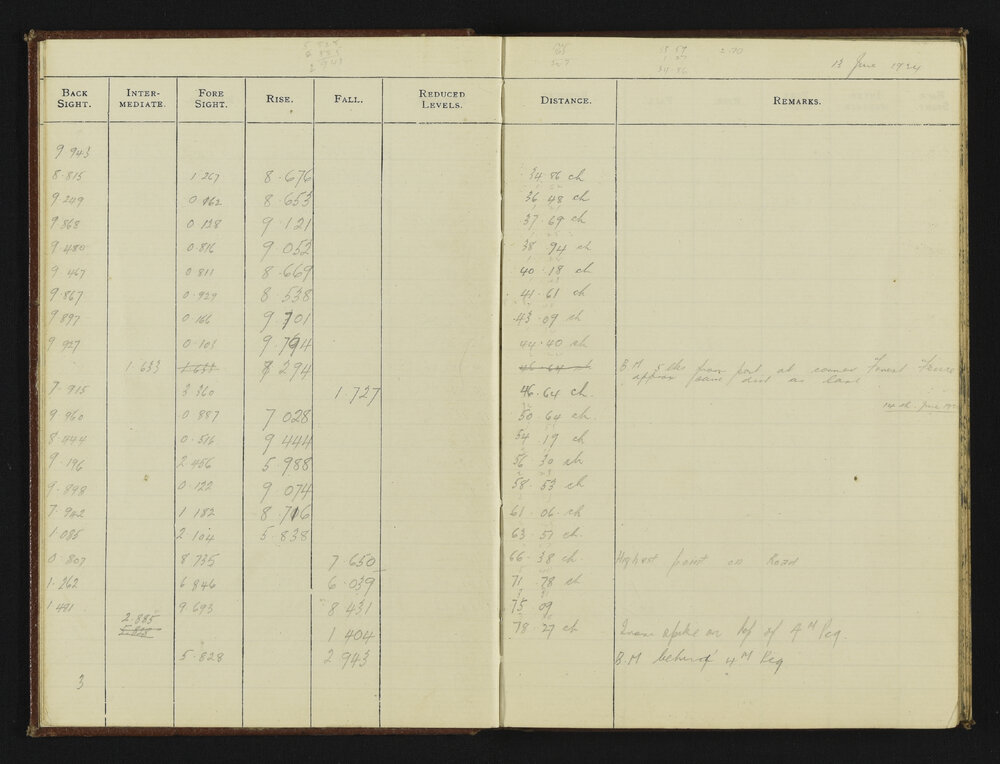 5 828
2 943
13 June 1924
BACK SIGHT. INTER-MEDIATE. FORE SIGHT. RISE. FALL. REDUCED LEVELS. DISTANCE. REMARKS.
9 943
8.815 1 267 8.676 34 86 ch
9 249 0 162 8 653 36 48 ch
9 868 0 128 9.121 37.69 ch
9 480 0 816 9.052 38 94 ch
9 467 0 811 8.669 40.18 ch
9.867 0 929 8.538 41.61 ch
9 897 0 166 9.701 43 09 ch
9 927 0 103 9.794 44.40 ch
1 633 1 633 8 294 46.64 ch B.M. 5 lks from post at corner Forest Fence
approx same dist as last
7.915 3 360 1.727 46.64 ch.
14th June
9 960 0 887 7 028 50.64 ch
8.444 0.516 9 444 54 19 ch
9.196 2 456 5.988 56 30 ch
9.898 0.122 9 074 58.53 ch
7.942 1 182 8.716 61.06 ch
1.085 2 104 5.838 63.57 ch
0.807 8 735 7 650 66.38 ch Highest point on Road
1.262 6 846 6.039 71 78 ch
1 481 9.693 8 431 75.09
2.885 1 404 78.27 ch Iron spike on top of 4 M Peg.
5.828 2 943 B.M behind 4 M Peg
3